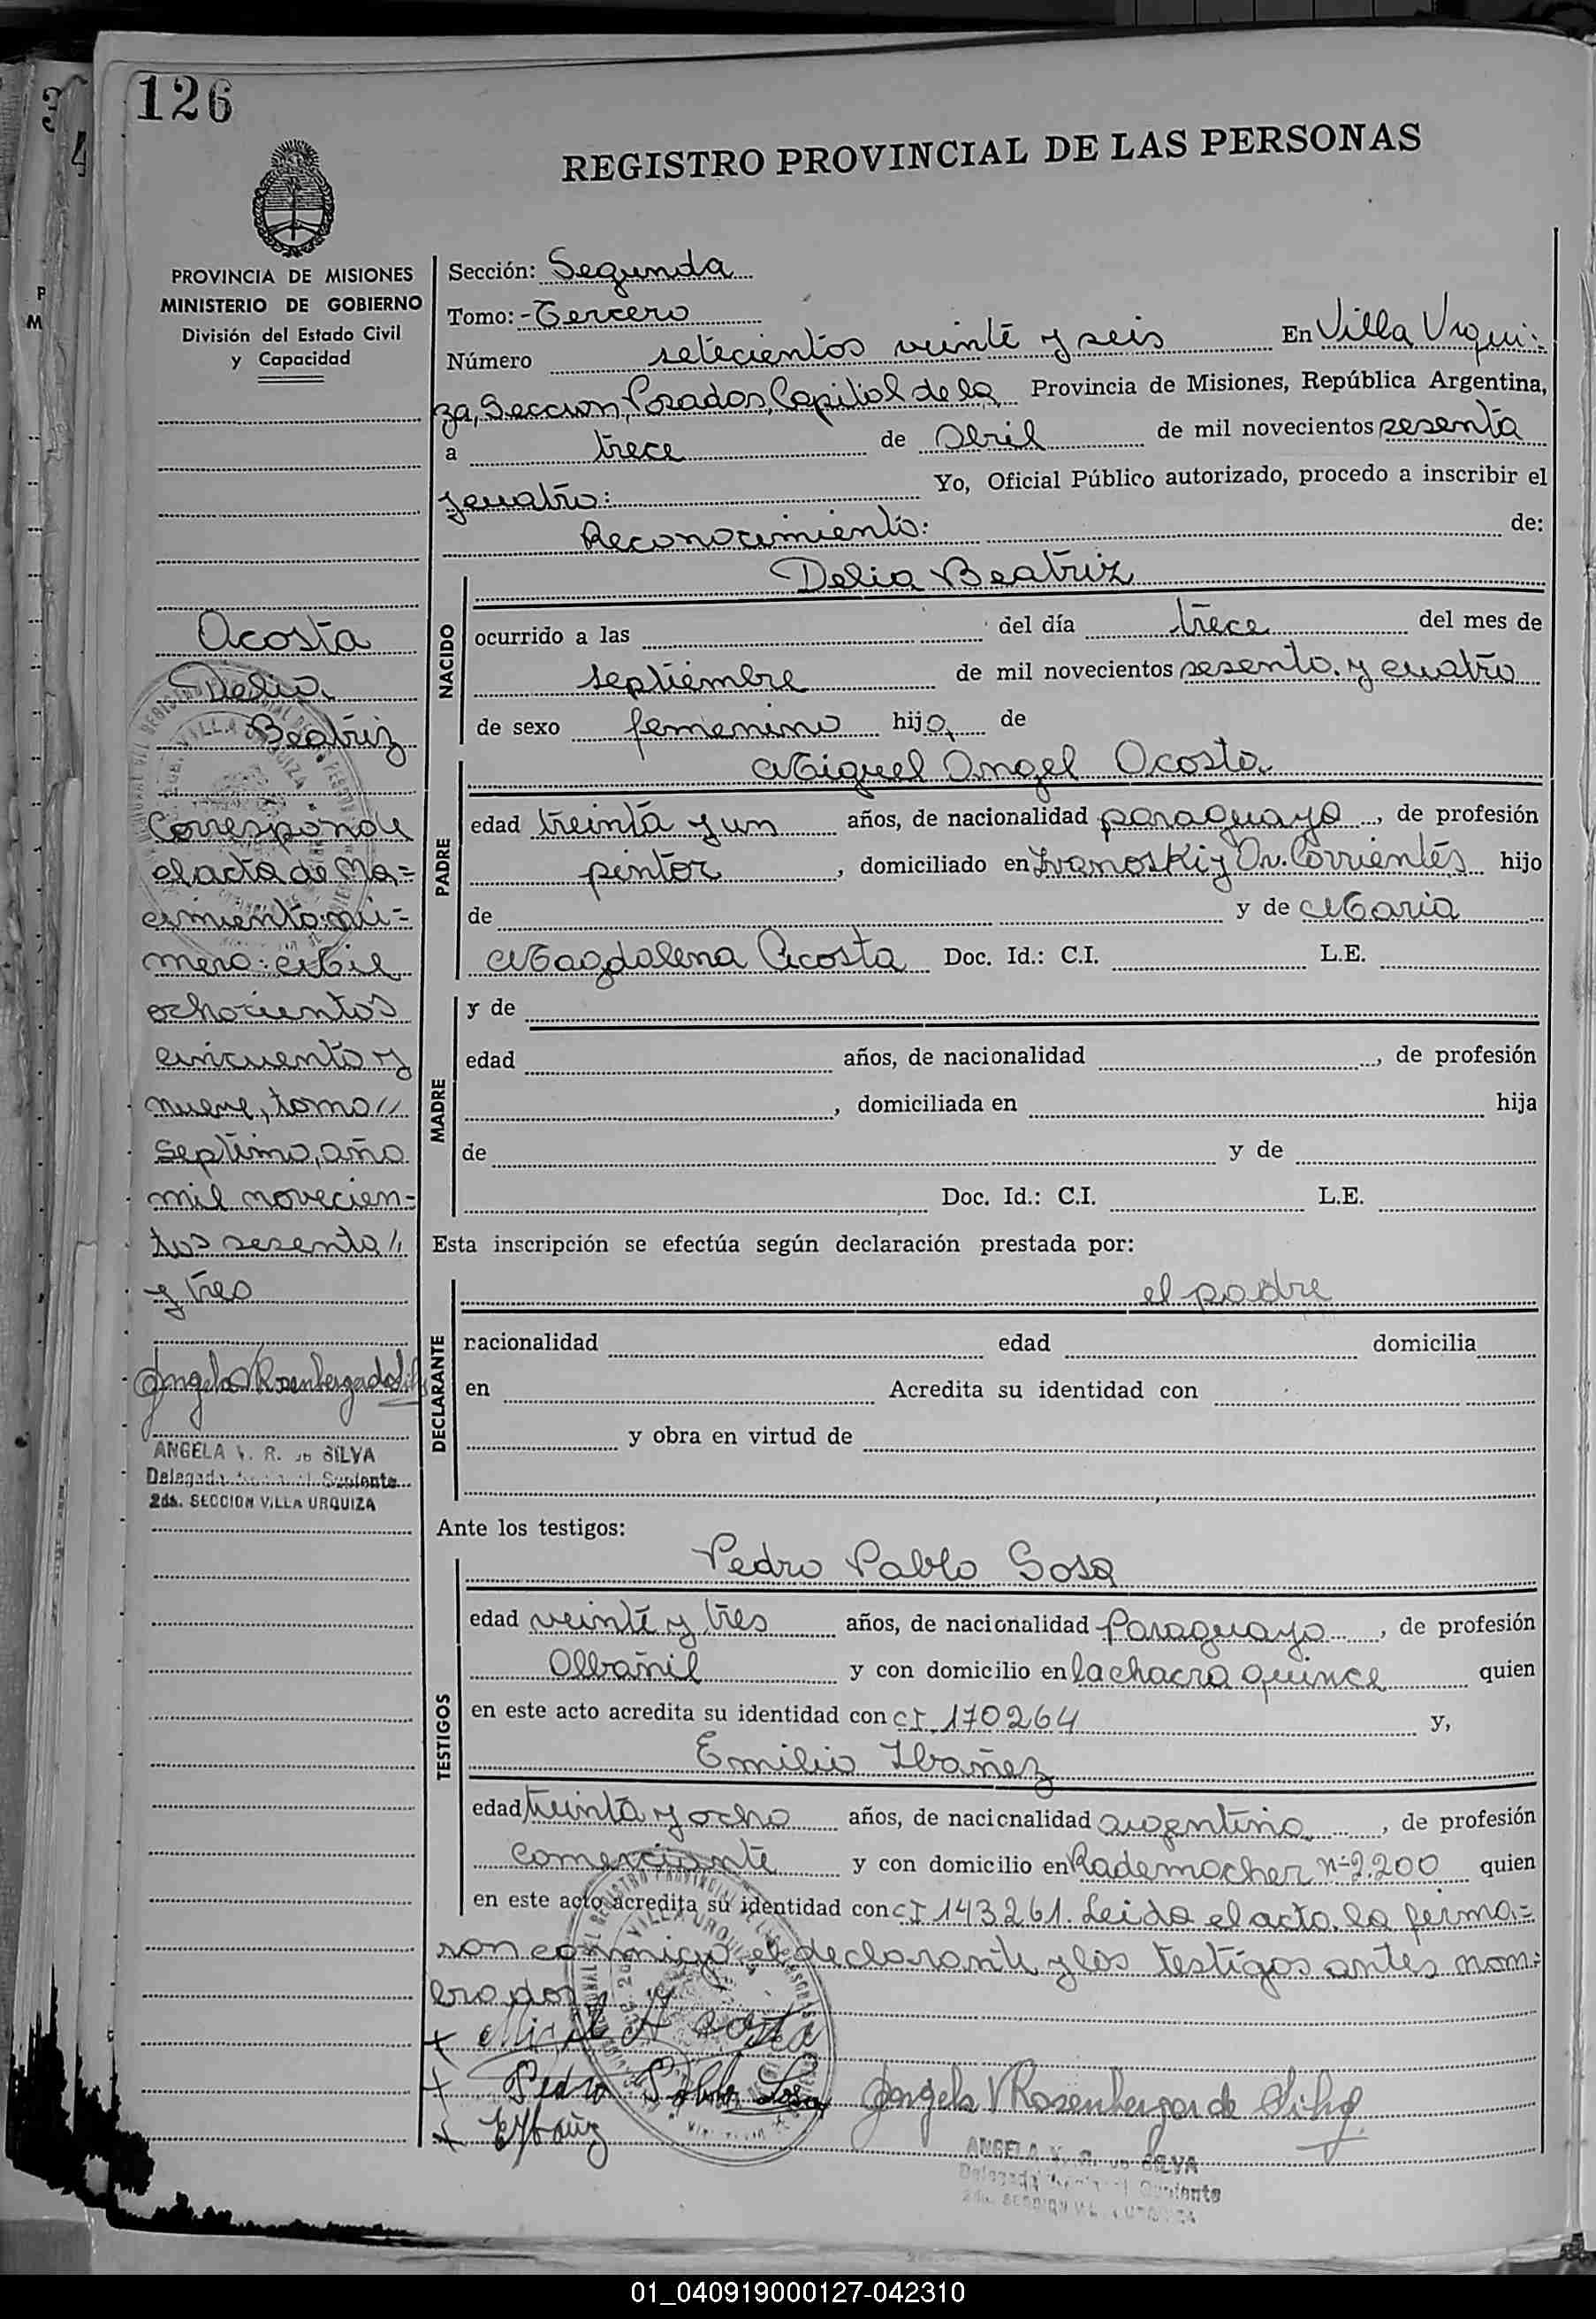 126
REGISTRO PROVINCIAL DE LAS PERSONAS
PROVINCIA DE MISIONES
MINISTERIO DE GOBIERNO
División del Estado Civil
y Capacidad
Acosta
Delia
Beatriz
Corresponde
el acta de Na=
cimiento nú=
mero: Mil
ochocientos
cincuenta y
nueve, tomo //
septimo, año
mil novecien=
tos sesenta //
y tres
Angela V Rosenberger de Silva
ANGELA V. R. de SILVA
Delegada Suplente
2da. SECCION VILLA URQUIZA
Sección: Segunda
Tomo: - Tercero
Número setecientos veinte y seis En Villa Urqui=
za, Seccion, Posadas, Capital de la Provincia de Misiones, República Argentina,
a trece de Abril de mil novecientos sesenta
y cuatro: Yo, Oficial Público autorizado, procedo a inscribir el
Reconocimiento: de:
NACIDO
Delia Beatriz
ocurrido a las del día trece del mes de
septiembre de mil novecientos sesenta y cuatro
de sexo femenino hija de
PADRE
Miguel Angel Acosta
edad treinta y un años, de nacionalidad paraguaya, de profesión
pintor, domiciliado en Ivanoski y Av. Corrientes hijo
de y de Maria
Magdalena Acosta Doc. Id.: C.I. L.E.
MADRE
y de
edad años, de nacionalidad , de profesión
, domiciliada en hija
de y de
Doc. Id.: C.I. L.E.
Esta inscripción se efectúa según declaración prestada por:
DECLARANTE
el padre
racionalidad edad domicilia
en Acredita su identidad con
y obra en virtud de
Ante los testigos:
TESTIGOS
Pedro Pablo Sosa
edad veinte y tres años, de nacionalidad Paraguaya, de profesión
Albañil y con domicilio en la chacra quince quien
en este acto acredita su identidad con C I. 170264 y,
Emilio Ibañez
edad treinta y ocho años, de nacionalidad argentina, de profesión
Comerciante y con domicilio en Rademacher nº 2.200 quien
en este acto acredita su identidad con C I 143261. Leida el acta, la firma=
ron conmigo el declarante y los testigos antes nom=
brados
+ Miguel A Acosta
+ Pedro Pablo Sosa Angela V Rosenberger de Silva
+ E Ybañez
ANGELA V. R. de SILVA
Delegada Suplente
2da. SECCION VILLA URQUIZA
01_040919000127-042310